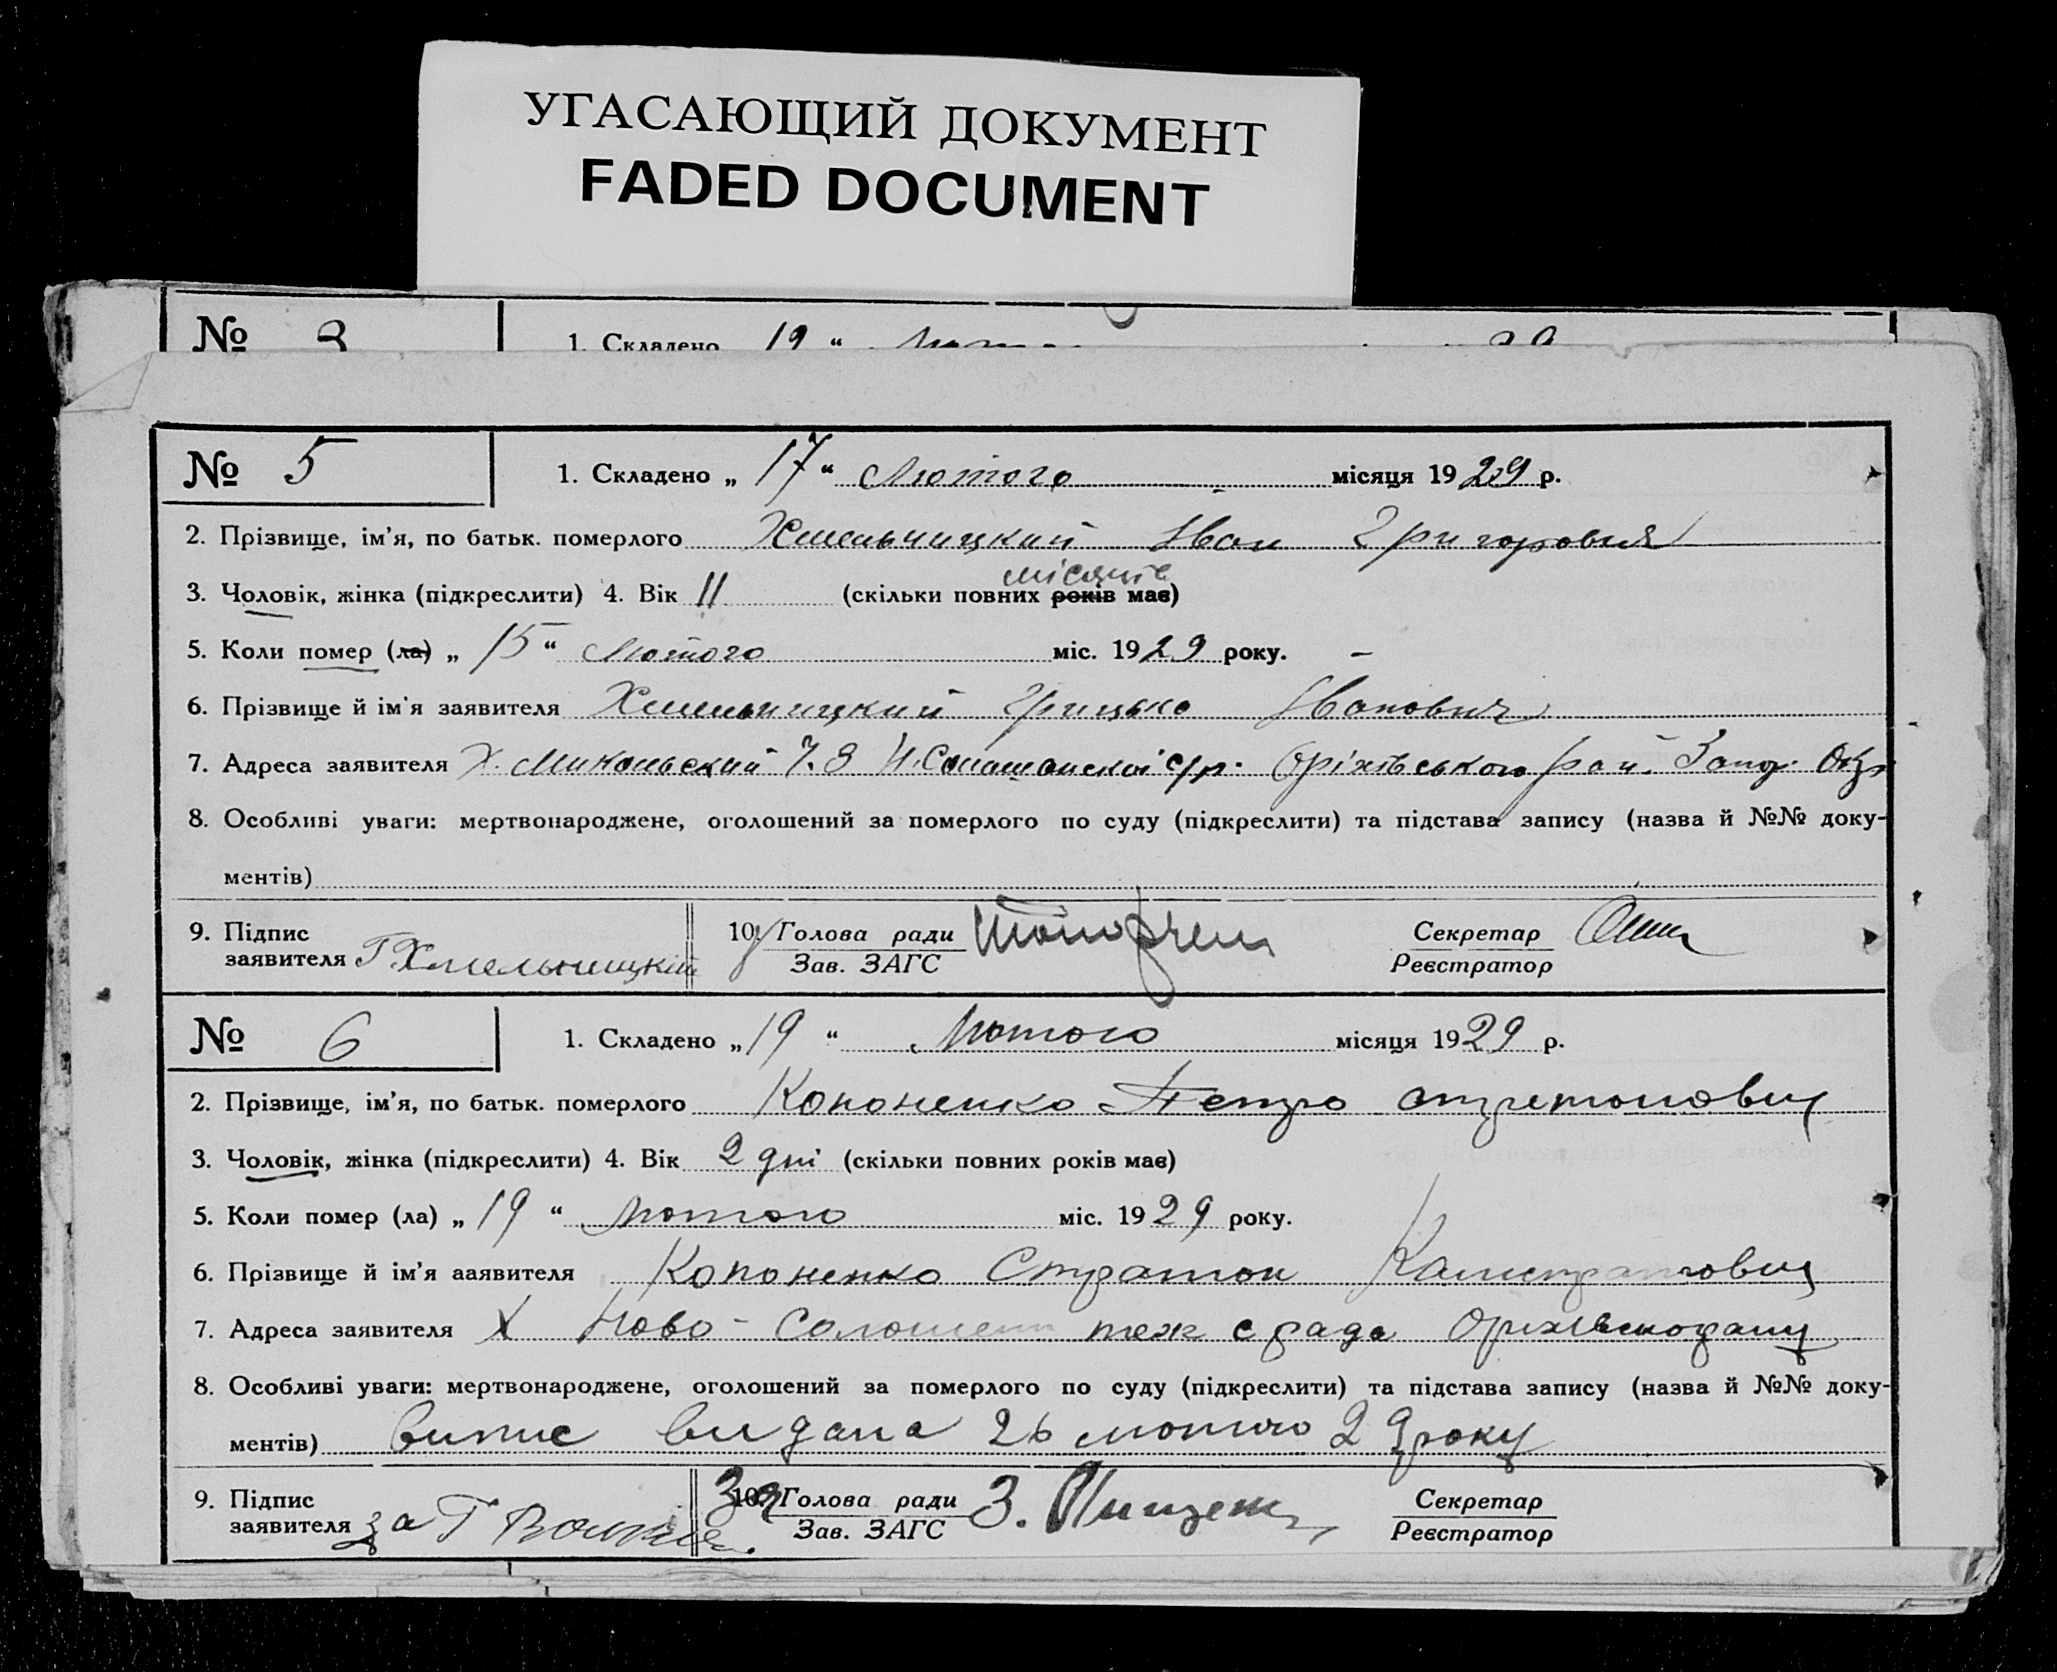 УГАСАЮЩИЙ ДОКУМЕНТ
FADED DOCUMENT
№ 3 1. Складено 19 “
№ 5 1. Складено „ 17 “ Лютого місяця 1929 р.
2. Прізвище, ім’я, по батьк. померлого Хмельницкий Иван Григорович
місяців
3. Чоловік, жінка (підкреслити) 4. Вік 11 (скільки повних років має)
5. Коли помер (ла) „ 15 “ Лютого міс. 1929 року. –
6. Прізвище й ім’я заявителя Хмельницкий Грицько Иванович
7. Адреса заявителя Х. Микольский Оріхівського рай. Запор. Окр
8. Особливі уваги: мертвонароджене, оголошений за померлого по суду (підкреслити) та підстава запису (назва й №№ доку-
ментів)
9. Підпис 10. Голова ради Секретар
заявителя Г Хмельницкій Зав. ЗАГС Реєстратор
№ 6 1. Складено „ 19 “ Лютого місяця 1929 р.
2. Прізвище, ім’я, по батьк. померлого Кононенко Петро
3. Чоловік, жінка (підкреслити) 4. Вік 2 дні (скільки повних років має)
5. Коли помер (ла) „ 19 “ лютого міс. 1929 року.
6. Прізвище й ім’я ааявителя Кононенко Стратон Калистратович
7. Адреса заявителя Х Ново- теж с рада
8. Особливі уваги: мертвонароджене, оголошений за померлого по суду (підкреслити) та підстава запису (назва й №№ доку-
ментів) випис видана 26 лютого 29 року
9. Підпис За 10. Голова ради З. Секретар
заявителя за Г Зав. ЗАГС Реєстратор